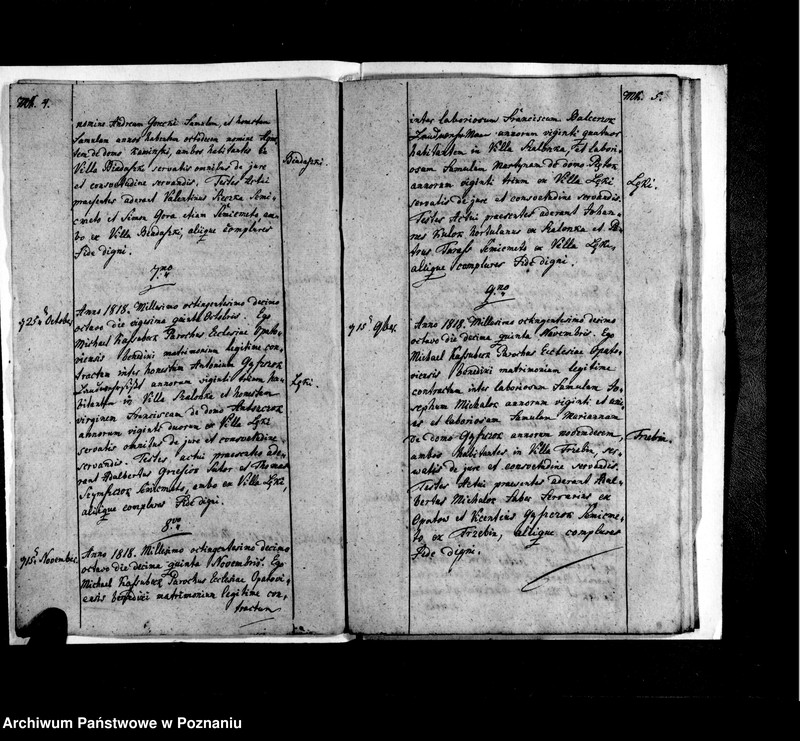 Mk. 4.
nomine Andream Gorecki Famulum, et honestam
Famulam annos habentem octodecem nomine Agne-
tem de domo Kaminski, ambos habitantes in
Villa Biadaszki servatis omnibus de jure
et consvetudine servandis. Testes Actui
praesentes aderant Valentinus Kieszka Semi-
cmeto et Simon Gora etiam Semicmeto, am-
bo ex Villa Biadaszki, aliique complures
Fide digni.
Biadaszki.
7.mo
d. 25a Octobr.
Anno 1818. Millesimo octingentesimo decimo
octavo die vigesima quinta Octobris. Ego
Michael Kassubek Parochus Ecclesiae Opato-
viensis benedixi matrimonium legitime con-
tractum inter honestum Antonium
annorum viginti trium ha-
bitantem in Villa Stalonka et honestam
virginem Franciscam de domo
annorum viginti duorum ex Villa Lęki
servatis omnibus de jure et consvetudine
servandis. Testes actui praesentes ade-
rant Adalbertus Sutor et Thomas
Semicmeto, ambo ex Villa Lęki,
aliique complures Fide digni.
Lęki.
8vo
d. 15. Novembr.
Anno 1818. Millesimo octingentesimo decimo
octavo die decima quinta Novembris. Ego
Michael Kassubek Parochus Ecclesiae Opatovi-
ensis benedixi matrimonium legitime con-
tractum
Mk. 5.
inter laboriosum Franciscum Balcerek
annorum viginti quatuor
habitantem in Villa Stalonka, et labori-
osam Famulam Martynam de domo
annorum viginti trium ex Villa Lęki
servatis de jure et consvetudine servandis.
Testes Actui praesentes aderant Johan-
nes Kulok hortulanus ex Stalonka et Pe-
trus Semicmeto ex Villa Lęki,
aliique complures Fide digni.
Lęki.
9.no
d. 15. 9br.
Anno 1818. Millesimo octingentesimo decimo
octavo die decima quinta Novembris. Ego
Michael Kassubek Parochus Ecclesiae Opato-
viensis benedixi matrimonium legitime
contractum inter laboriosum Famulum Jo-
sephum Michalak annorum viginti et uni-
us et laboriosam Famulam Mariannam
de domo annorum novemdecem,
ambos habitantes in Villa Trzebin, ser-
vatis de jure et consvetudine servandis.
Testes Actui praesentes aderant Adal-
bertus Michalak Faber Ferrarius ex
Opatow et Vicentius Semicme-
to ex Trzebin, aliique complures
Fide digni.
Trzebin.
Archiwum Państwowe w Poznaniu